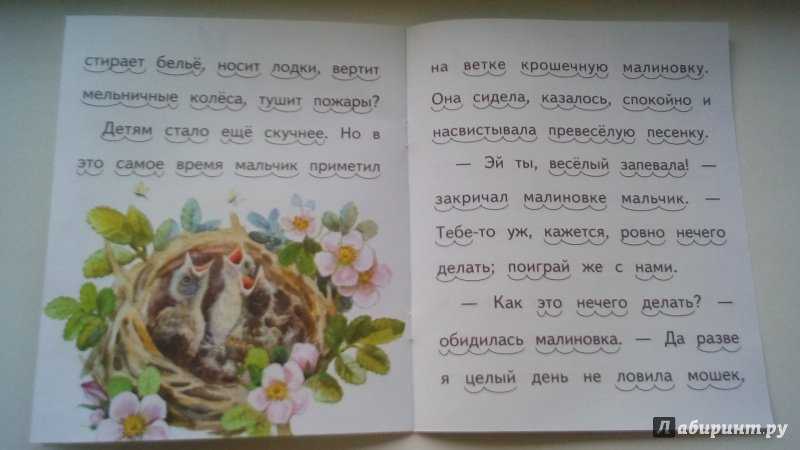 стирает бельё, носит лодки, вертит
мельничные колёса, тушит пожары?
Детям стало ещё скучнее. Но в
это самое время мальчик приметил
на ветке крошечную малиновку.
Она сидела, казалось, спокойно и
насвистывала превесёлую песенку.
— Эй ты, весёлый запевала! —
закричал малиновке мальчик. —
Тебе-то уж, кажется, ровно нечего
делать; поиграй же с нами.
— Как это нечего делать? —
обидилась малиновка. — Да разве
я целый день не ловила мошек,
Лабиринт.ру